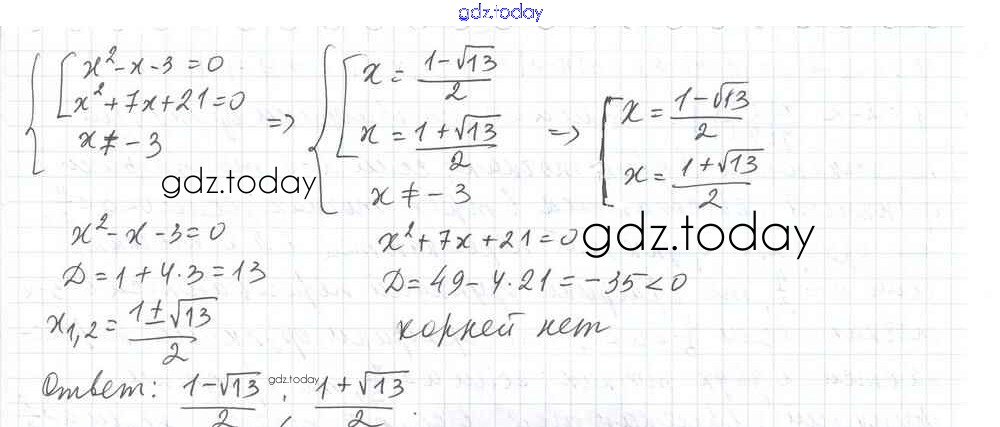 gdz.today
{ [ x² - x - 3 = 0
x² + 7x + 21 = 0
x ≠ -3
=> { [ x = (1 - √13)/2
x = (1 + √13)/2
x ≠ -3
=> [ x = (1 - √13)/2
x = (1 + √13)/2
gdz.today
x² - x - 3 = 0
D = 1 + 4·3 = 13
x₁,₂ = (1 ± √13)/2
x² + 7x + 21 = 0
gdz.today
D = 49 - 4·21 = -35 < 0
корней нет
Ответ: (1 - √13)/2 ; (1 + √13)/2.
gdz.today